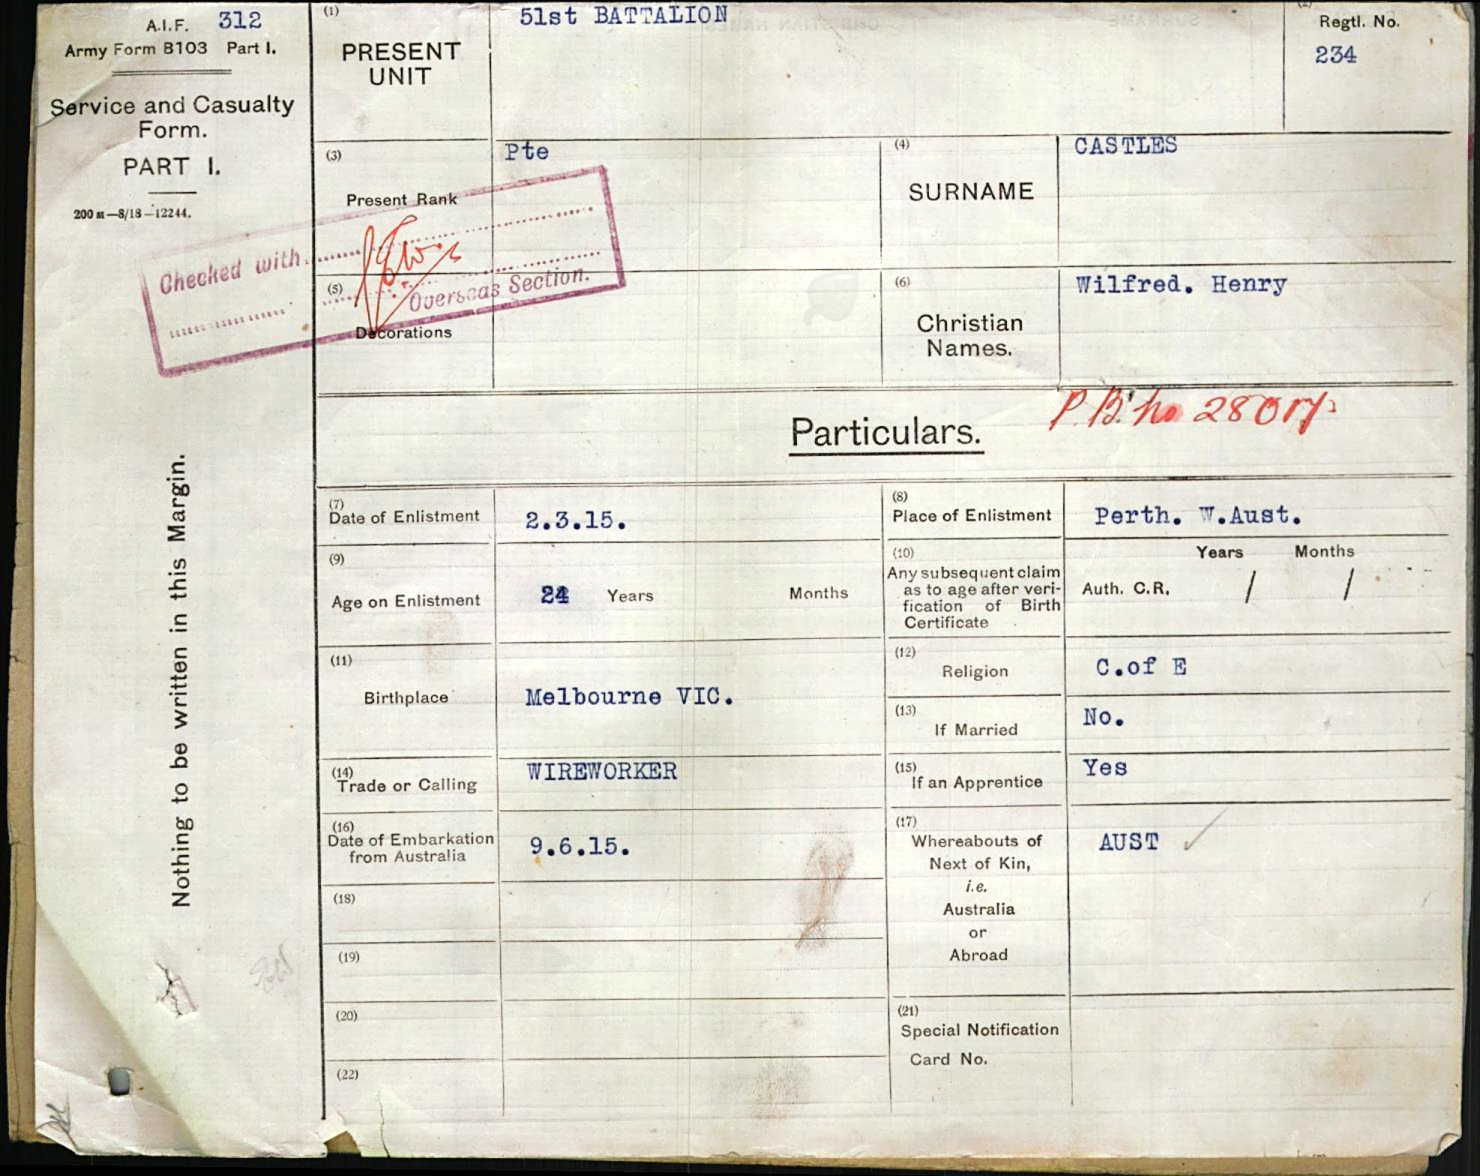 A.I.F. 312
Army Form B103 Part I.
Service and Casualty
Form.
PART I.
200 m—8/18—12244.
Nothing to be written in this Margin.
(1)
PRESENT
UNIT
51st BATTALION
Regtl. No.
234
(3)
Present Rank
Pte
(4)
SURNAME
CASTLES
Checked with
Overseas Section.
(5)
Decorations
(6)
Christian
Names.
Wilfred. Henry
Particulars.
P.B. No 28017
(7)
Date of Enlistment
2.3.15.
(8)
Place of Enlistment
Perth. W.Aust.
(9)
Age on Enlistment
24 Years Months
(10)
Any subsequent claim
as to age after veri-
fication of Birth
Certificate
Years Months
Auth. C.R. / /
(11)
Birthplace
Melbourne VIC.
(12)
Religion
C.of E
(13)
If Married
No.
(14)
Trade or Calling
WIREWORKER
(15)
If an Apprentice
Yes
(16)
Date of Embarkation
from Australia
9.6.15.
(17)
Whereabouts of
Next of Kin,
i.e.
Australia
or
Abroad
AUST
(18)
(19)
(20)
(21)
Special Notification
Card No.
(22)